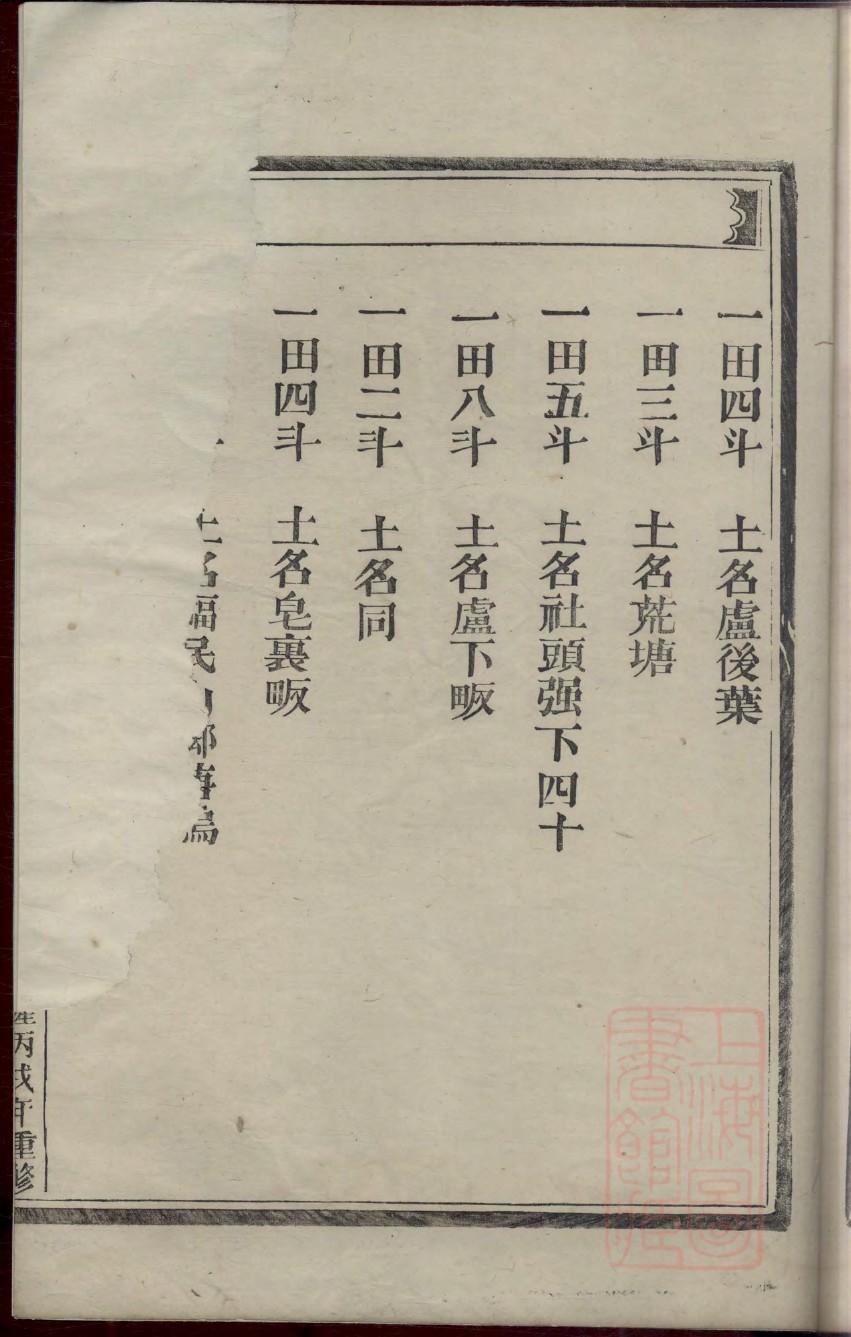 一田四斗　土名盧後葉
一田三斗　土名荒塘
一田五斗　土名社頭强下四十
一田八斗　土名盧下畈
一田二斗　土名同
一田四斗　土名皂裏畈
土名福民
丙戌年重修
上海圖書館藏